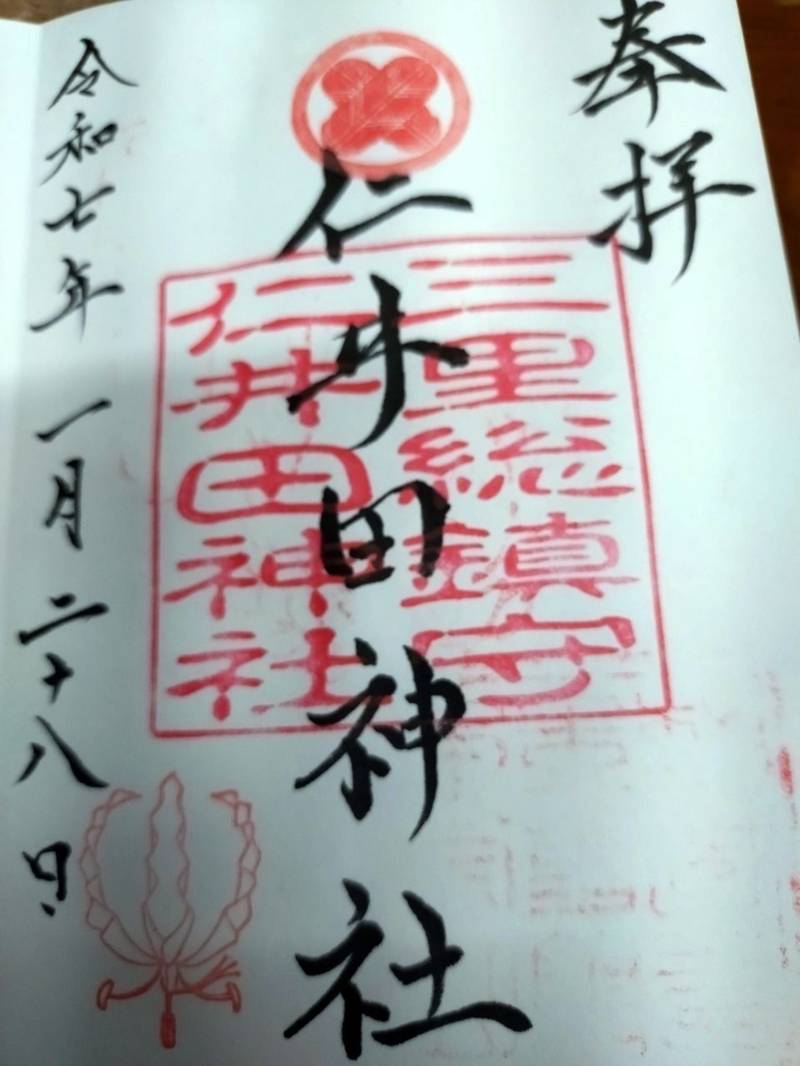 奉拝
三里総鎮守
仁井田神社
仁井田神社
令和七年 一月 二十八日